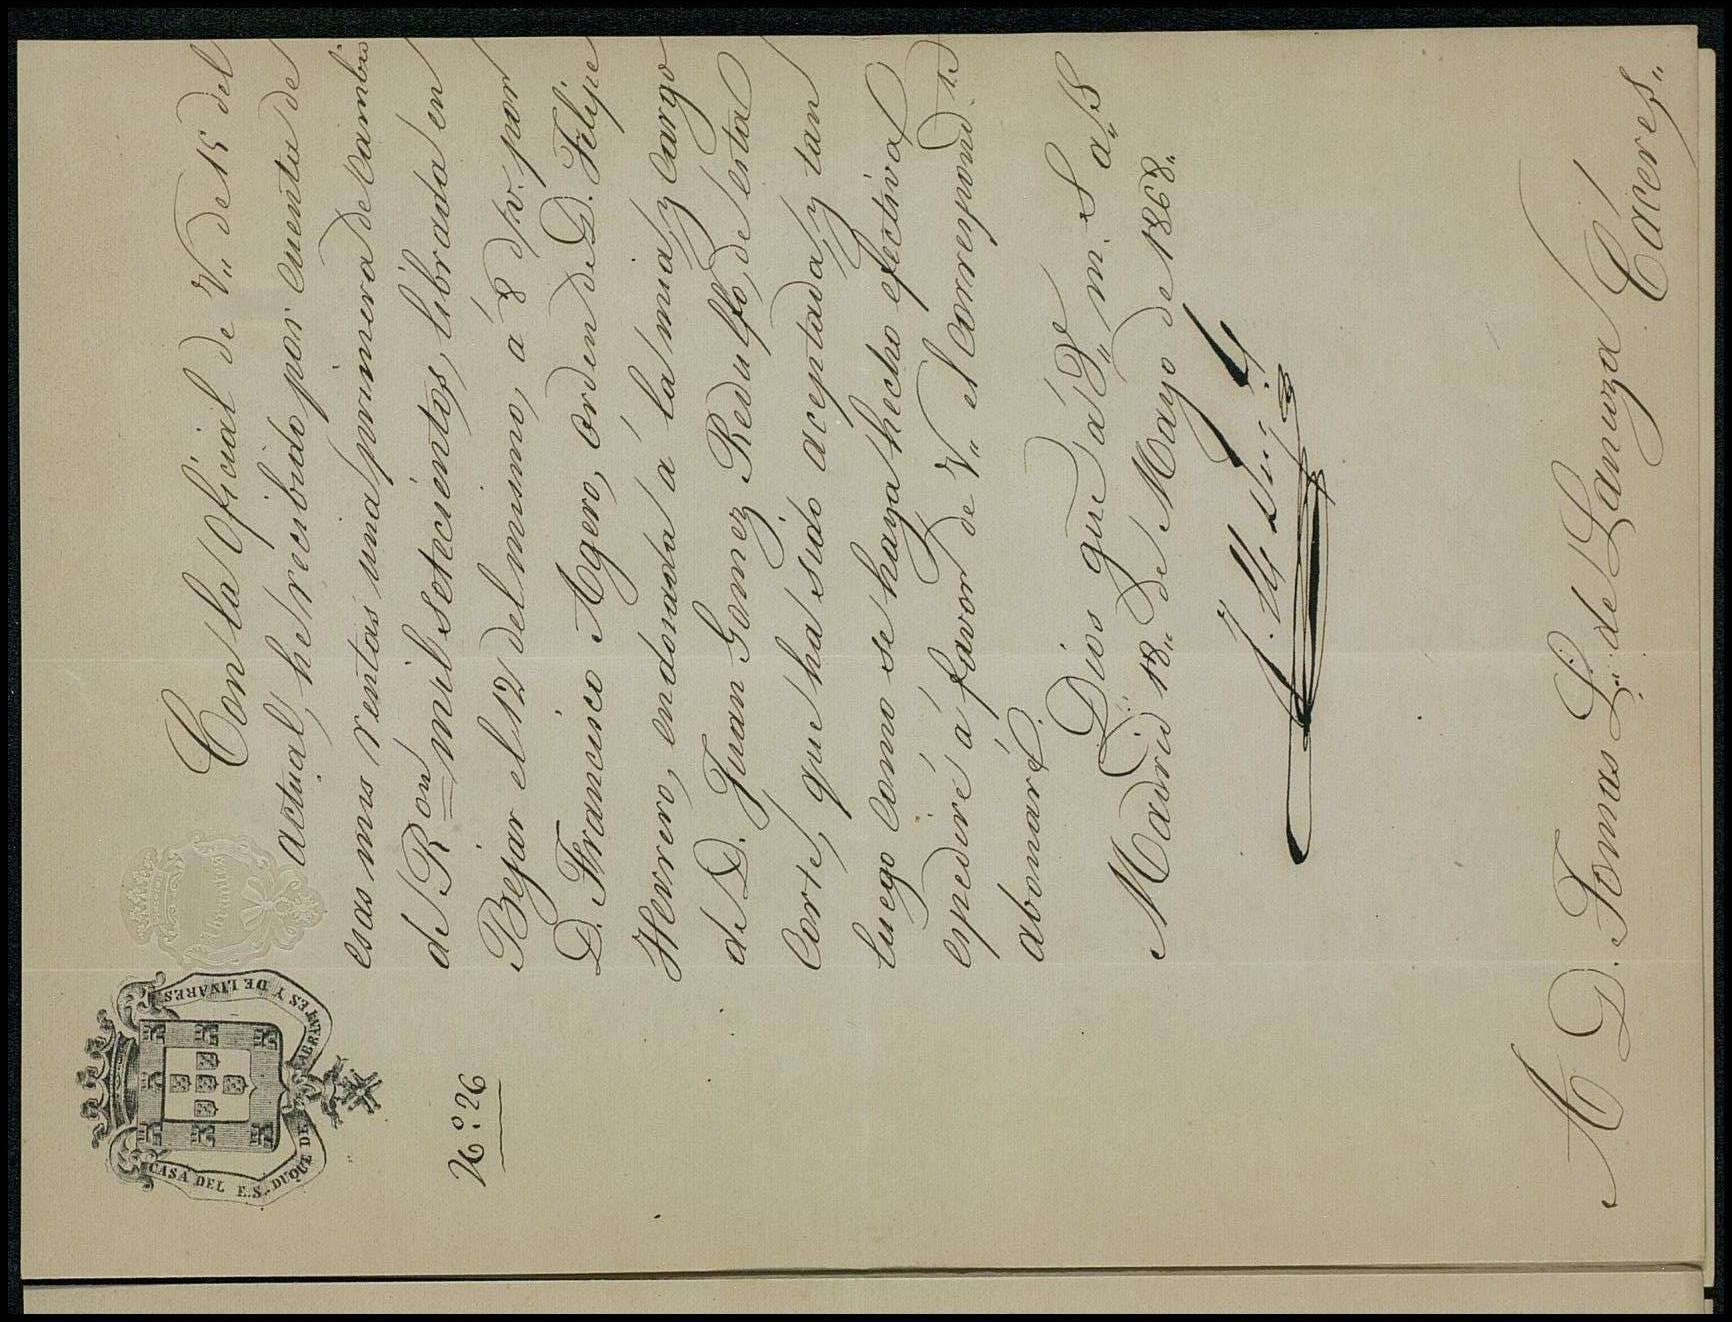 CASA DEL E.S. DUQUE DE ABRANTES Y DE LINARES
N.º 26
Con la oficial de V.. de 15 del
actual, he recibido por cuenta de
esas mis rentas una primera de Cambio
de Rᵒⁿ mil setecientos, librada en
Bejar el 12 del mismo, á 8 d/v. por
D. Francisco Agero, orden de D. Felipe
Herrero, endonada á la mia y cargo
de D. Juan Gomez Redulfo, de esta
Corte, que ha sido aceptada y tan
luego como se haya hecho efectiva
espediré á favor de V.. el correspond.ᵗᵉ
abonaré.
Dios gue á V.. m. s a..s
Madrid 18.. de Mayo de 1868..
A D. Tomas L.. de Lanuza. Caceres..